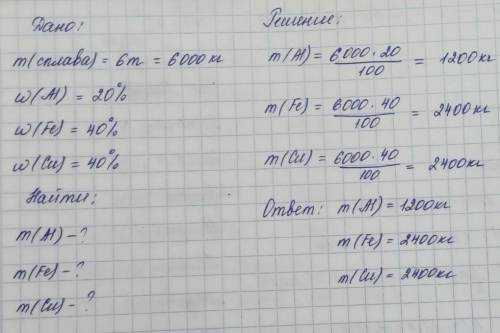 Дано:
m(сплава) = 6т = 6000кг
w(Al) = 20%
w(Fe) = 40%
w(Cu) = 40%
Найти:
m(Al) - ?
m(Fe) - ?
m(Cu) - ?
Решение:
m(Al) = 6000·20/100 = 1200кг
m(Fe) = 6000·40/100 = 2400кг
m(Cu) = 6000·40/100 = 2400кг
Ответ: m(Al) = 1200кг
m(Fe) = 2400кг
m(Cu) = 2400кг